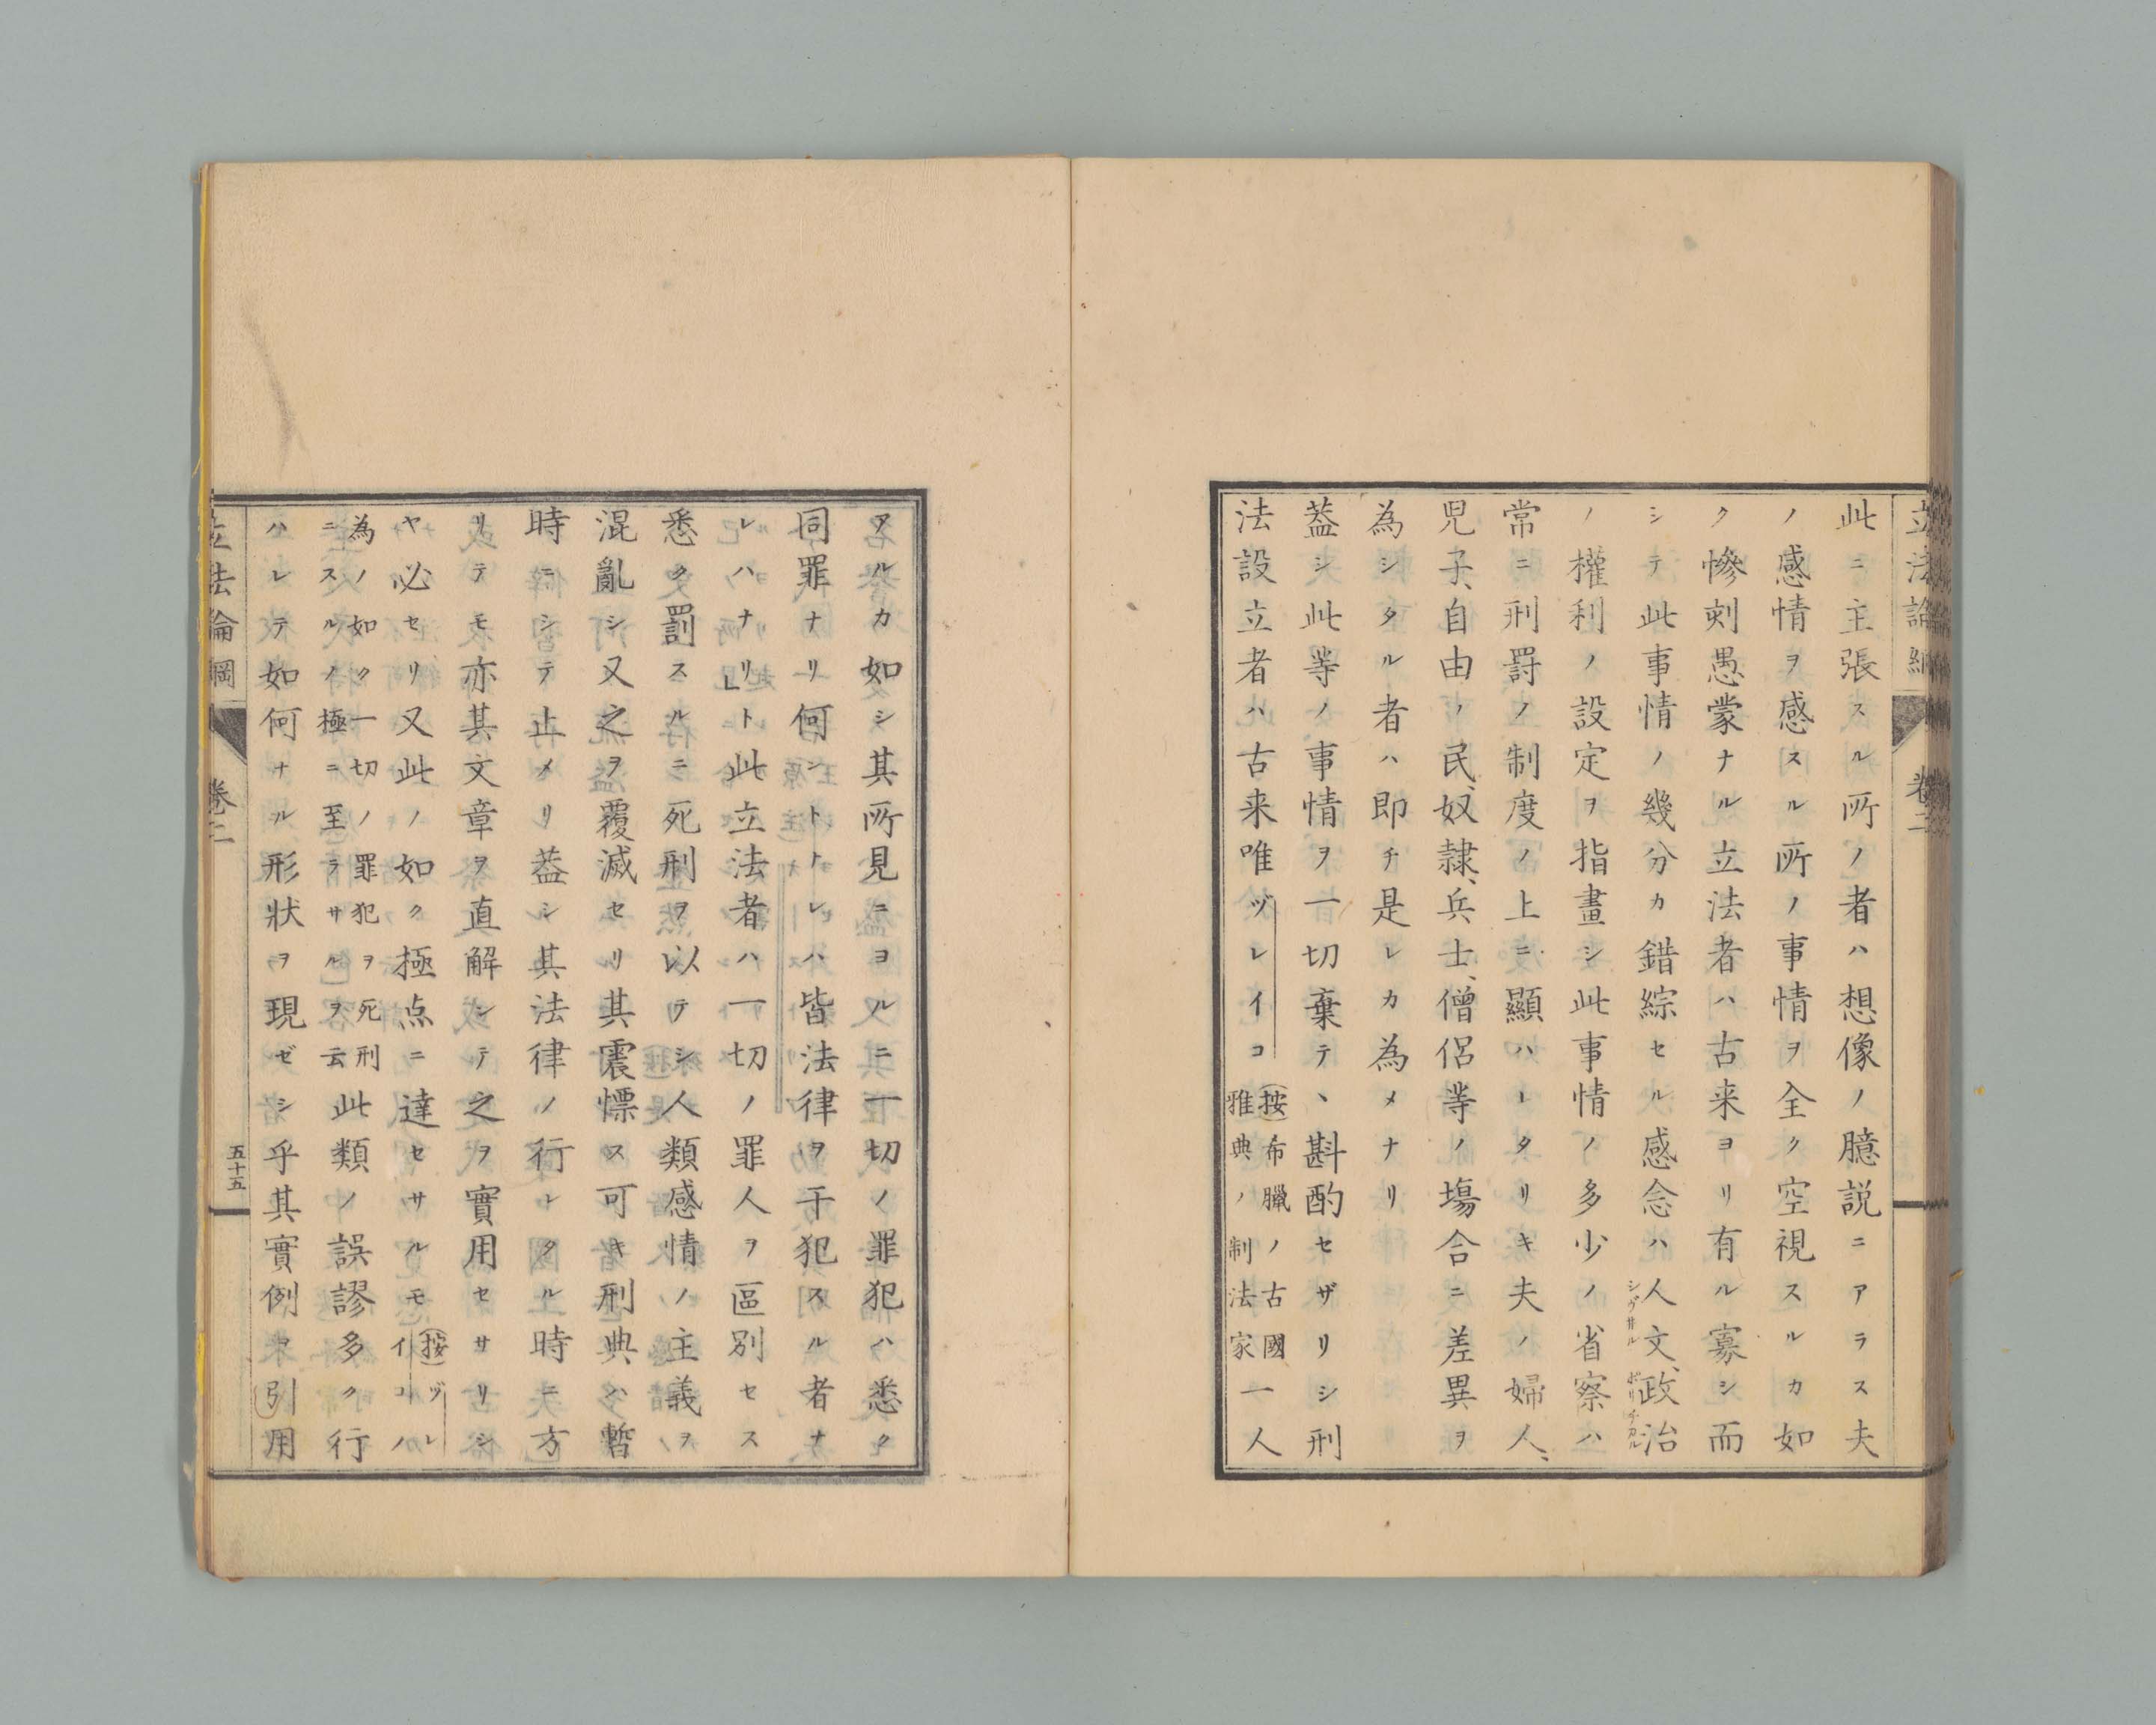 立法論綱 卷二
此ニ主張スル所ノ者ハ想像ノ臆説ニアラス夫
ノ感情ヲ感スル所ノ事情ヲ全ク空視スルカ如
ク慘刻愚蒙ナル立法者ハ古来ヨリ有ル寡シ而
シテ此事情ノ幾分カ錯綜セル感念ハ人文、政治
シヴ井ル ポリチカル
ノ權利ノ設定ヲ指畫シ此事情ノ多少ノ省察ハ
常ニ刑罰ノ制度ノ上ニ顯ハレタリキ夫ノ婦人、
児子、自由ノ民、奴隷、兵士、僧侶等ノ塲合ニ差異ヲ
為シタル者ハ即チ是レカ為メナリ
葢シ此等ノ事情ヲ一切棄テヽ斟酌セザリシ刑
法設立者ハ古来唯ヅレイコ
(按)布臘ノ古國
雅典ノ制法家
一人
アルカ如シ其所見ニヨルニ一切ノ罪犯ハ悉ク
同罪ナリ何ントナレハ皆法律ヲ干犯スル者ナ
レハナリ」ト此立法者ハ一切ノ罪人ヲ區別セス
悉ク罰スルニ死刑ヲ以テシ人類感情ノ主義ヲ
混亂シ又之ヲ覆滅セリ其震慓ス可キ刑典ハ暫
時ニシテ止メリ葢シ其法律ノ行レタル時ニ方
リテモ亦其文章ヲ直解シテ之ヲ實用セサリシ
ヤ必セリ又此ノ如ク極点ニ達セサルモ
(按)ヅレ
イコハ
為ノ如ク一切ノ罪犯ヲ死刑
ニスルノ極ニ至ラサルヲ云
此類ノ誤謬多ク行
ハレテ如何ナル形状ヲ現ゼシ乎其實例ヲ引用
立法論綱 卷二 五十五